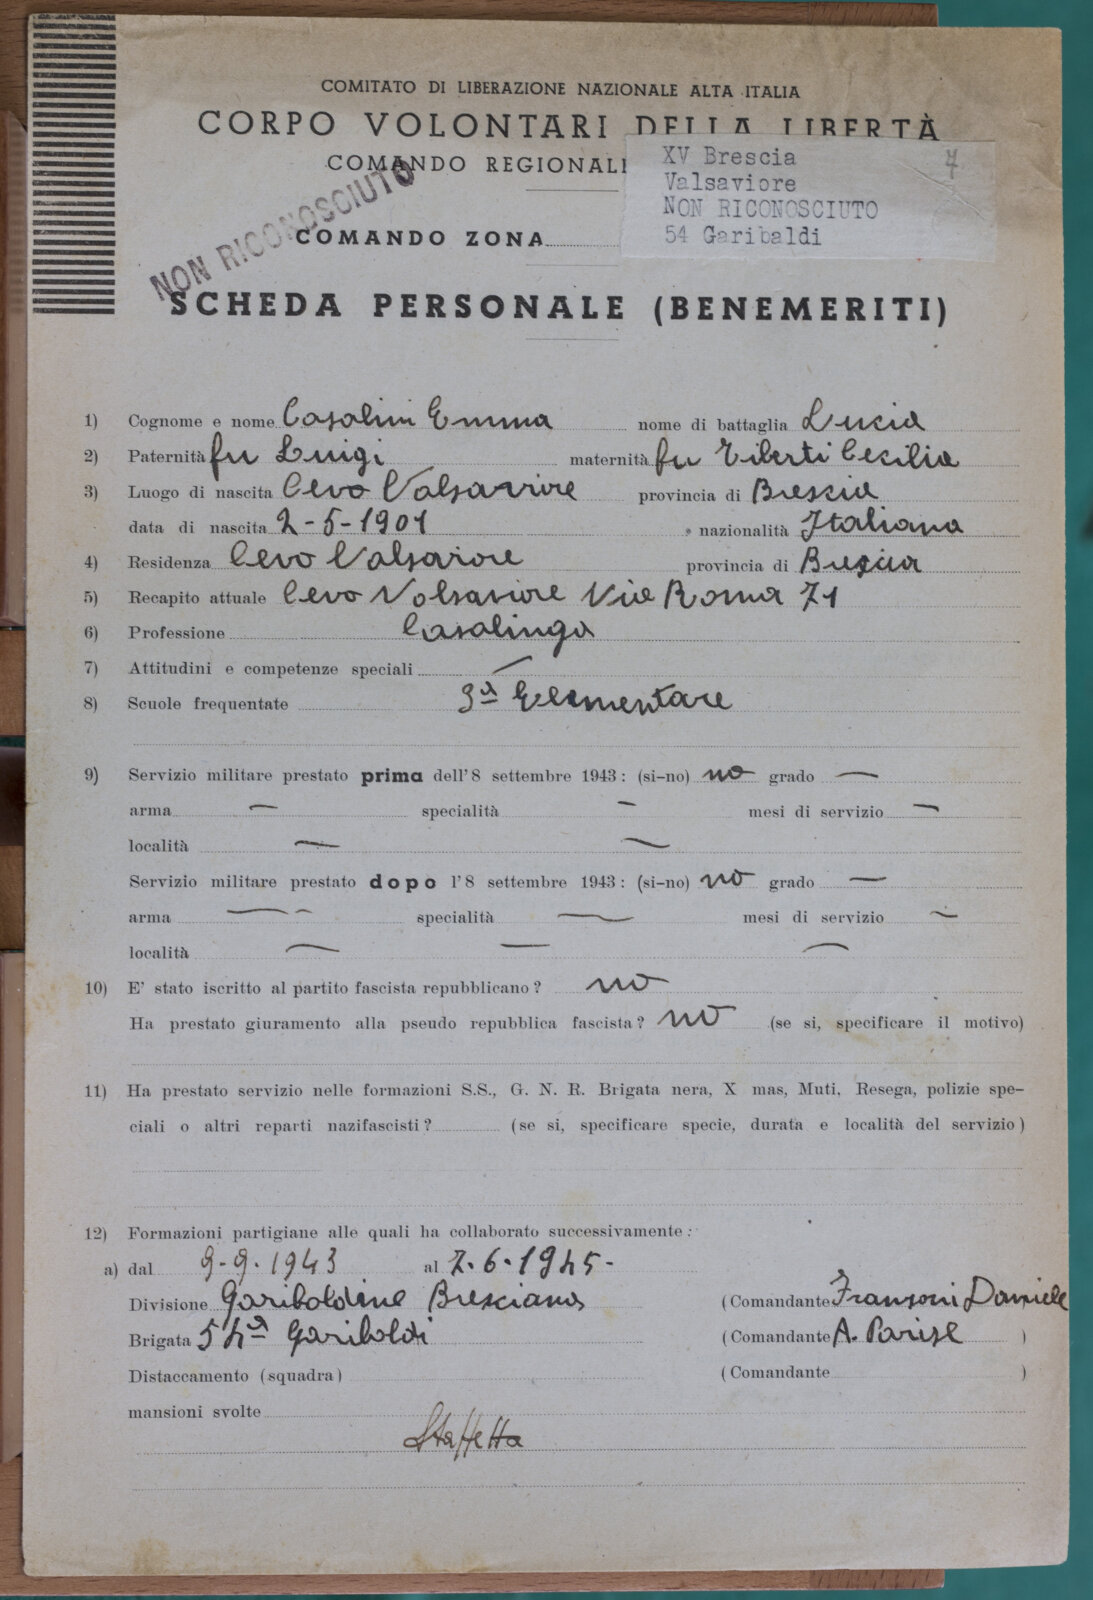 COMITATO DI LIBERAZIONE NAZIONALE ALTA ITALIA
CORPO VOLONTARI DELLA LIBERTÀ
COMANDO REGIONALE
XV Brescia 7
Valsaviore
NON RICONOSCIUTO
54 Garibaldi
NON RICONOSCIUTO
COMANDO ZONA
SCHEDA PERSONALE (BENEMERITI)
1) Cognome e nome Casalini Emma nome di battaglia Lucia
2) Paternità fu Luigi maternità fu Tiberti Cecilia
3) Luogo di nascita Cevo Valsaviore provincia di Brescia
data di nascita 2-5-1901 nazionalità Italiana
4) Residenza Cevo Valsaviore provincia di Brescia
5) Recapito attuale Cevo Valsaviore Via Roma 71
6) Professione Casalinga
7) Attitudini e competenze speciali —
8) Scuole frequentate 3ª Elementare
9) Servizio militare prestato prima dell'8 settembre 1943: (si-no) no grado —
arma — specialità — mesi di servizio —
località — —
Servizio militare prestato dopo l'8 settembre 1943: (si-no) no grado —
arma — — specialità — mesi di servizio —
località — — —
10) E' stato iscritto al partito fascista repubblicano? no
Ha prestato giuramento alla pseudo repubblica fascista? no (se si, specificare il motivo)
11) Ha prestato servizio nelle formazioni S.S., G. N. R. Brigata nera, X mas, Muti, Resega, polizie spe-
ciali o altri reparti nazifascisti? (se si, specificare specie, durata e località del servizio)
12) Formazioni partigiane alle quali ha collaborato successivamente:
a) dal 9-9-1943 al 7.6.1945-
Divisione Garibaldine Bresciana (Comandante Franzoni Daniele
Brigata 54ª Garibaldi (Comandante A. Parise )
Distaccamento (squadra) (Comandante )
mansioni svolte
Staffetta